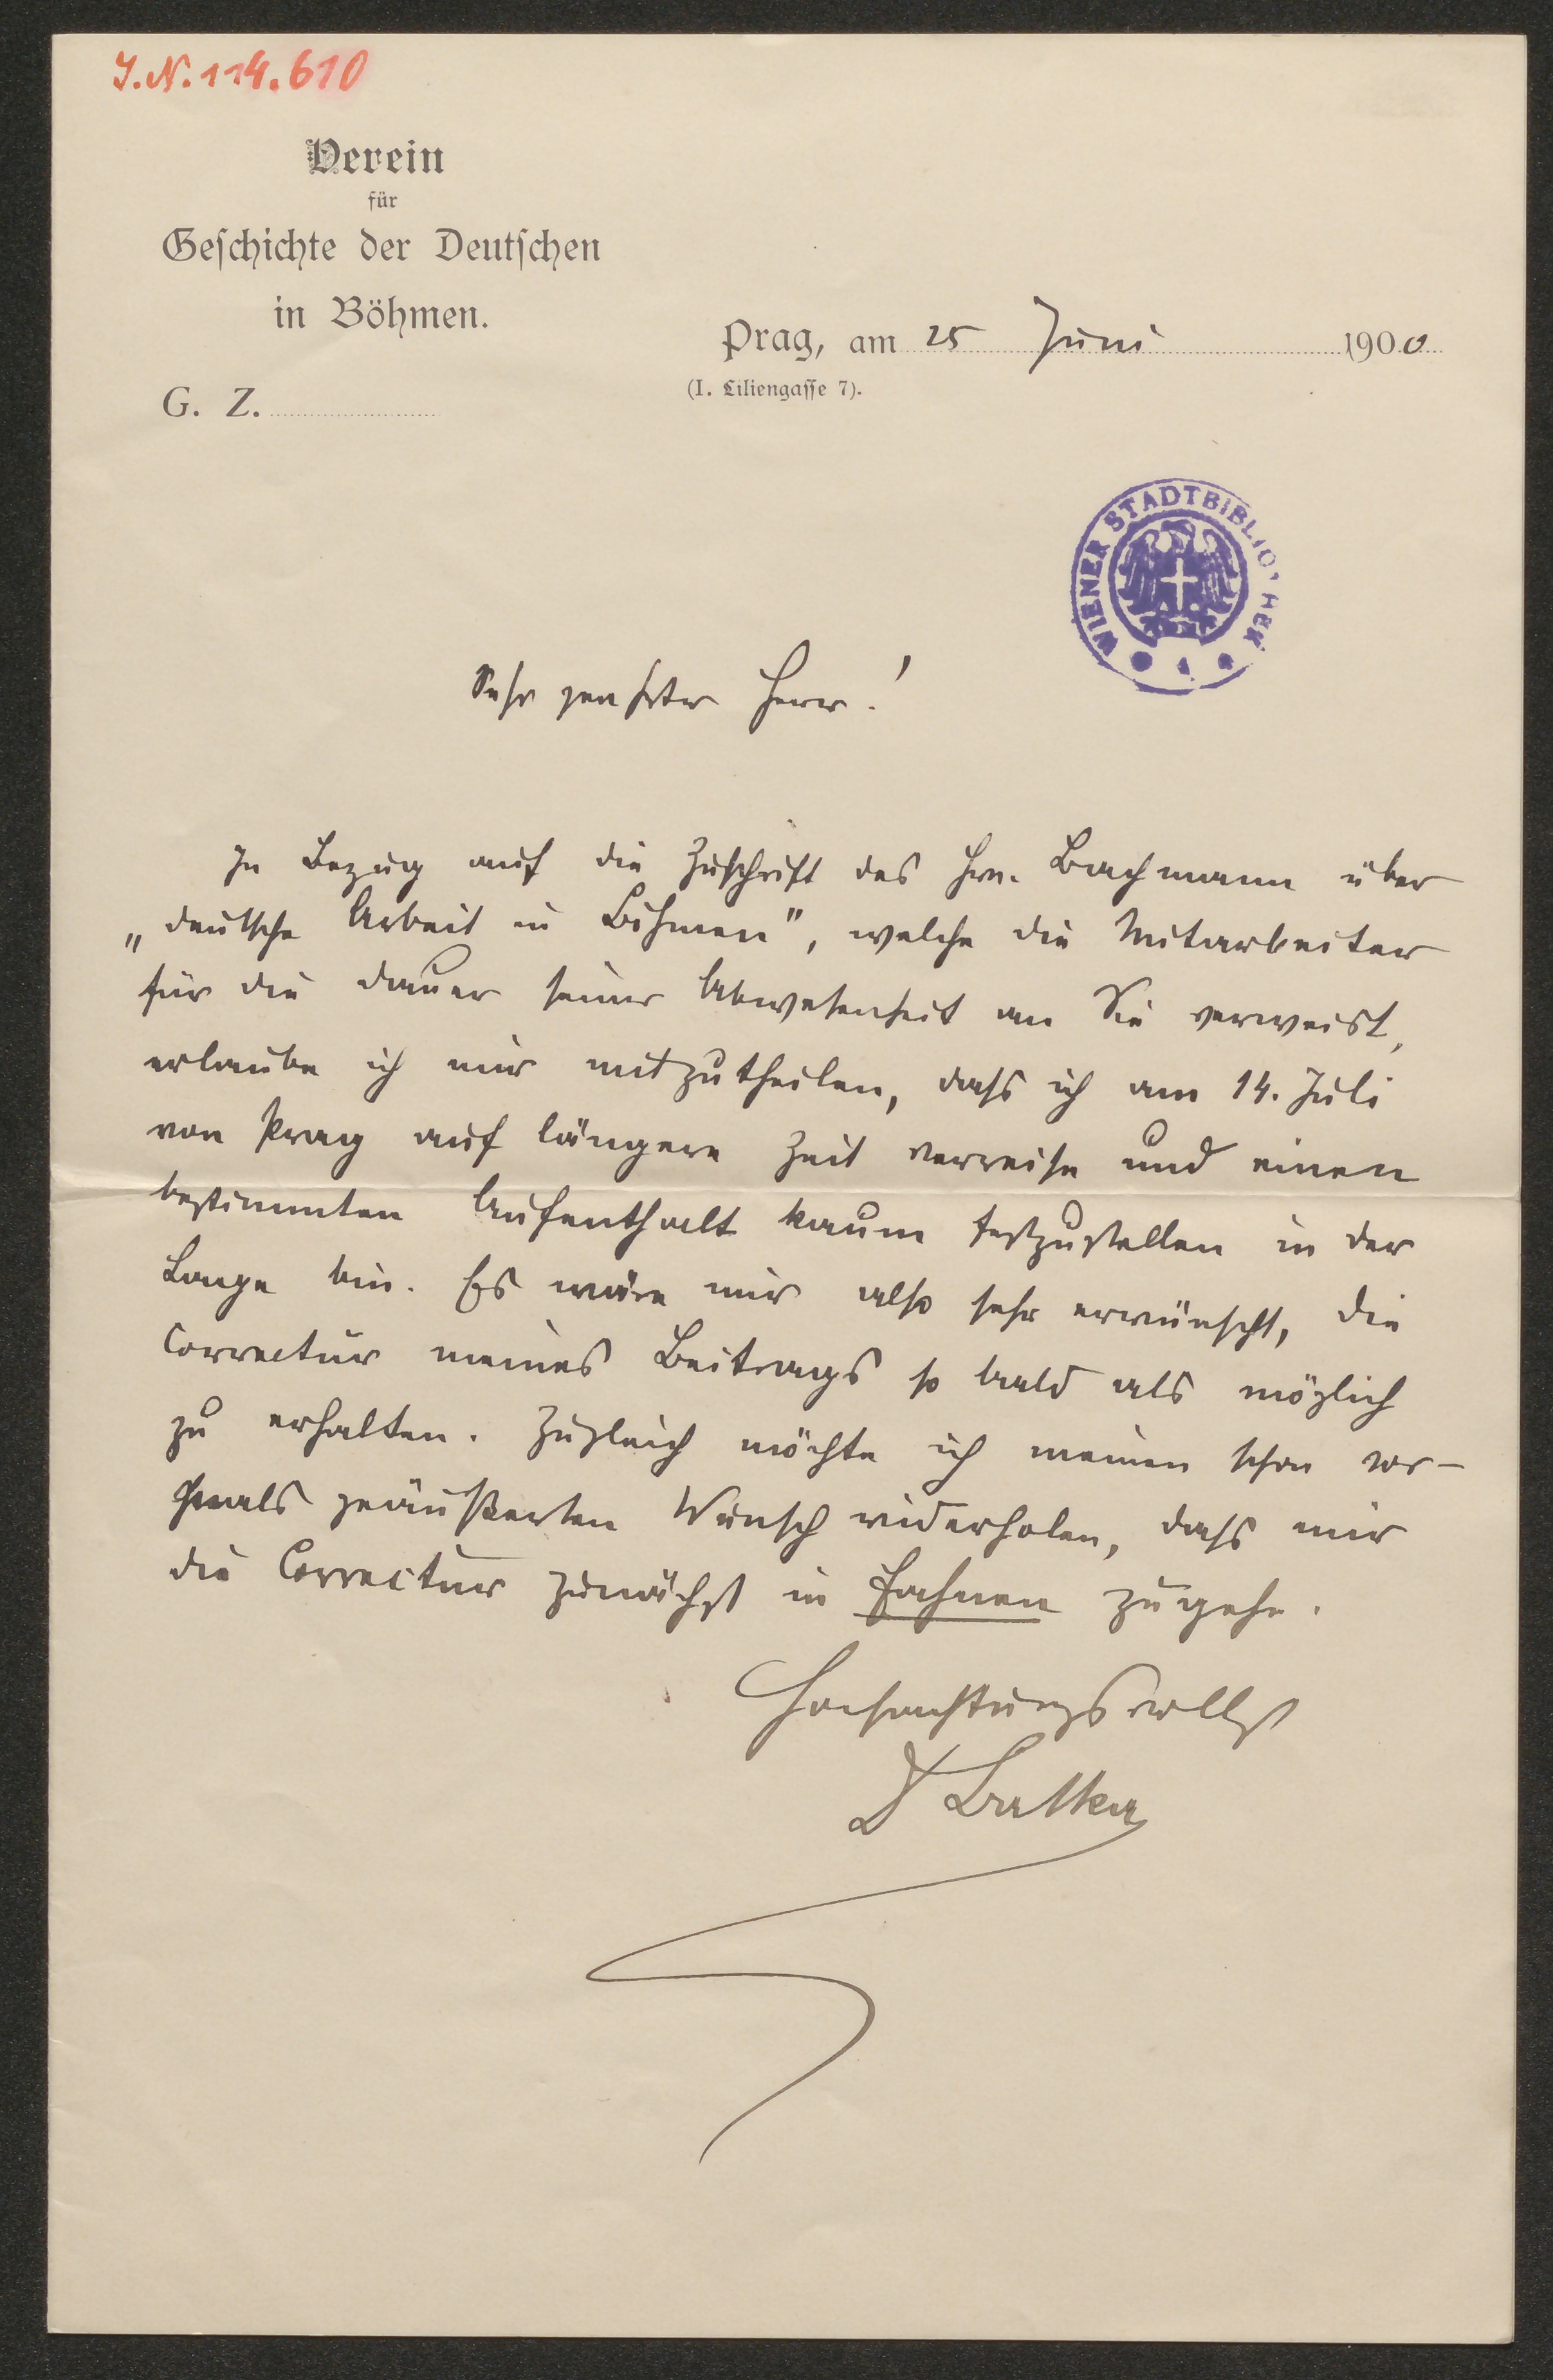 J.N. 114.610
Verein
für
Geschichte der Deutschen
in Böhmen.
Prag, am 25 Juni 1900
(I. Liliengasse 7).
G. Z.
WIENER STADTBIBLIOTHEK
Sehr geehrter Herr!
In Bezug auf die Zuschrift des Hrn. Bachmann über
„deutsche Arbeit in Böhmen", welche die Mitarbeiter
für die Dauer seiner Abwesenheit an Sie verweist,
erlaube ich mir mitzutheilen, dass ich am 14. Juli
von Prag auf längere Zeit verreise und einen
bestimmten Aufenthalt kaum festzustellen in der
Lage bin. Es wäre mir also sehr erwünscht, die
Correctur meines Beitrags so bald als möglich
zu erhalten. Zugleich möchte ich meinen schon
geäußerten Wunsch widerholen, dass mir
die Correctur zunächst in Fahnen zugehe.
Hochachtungsvollst
Dr Batka